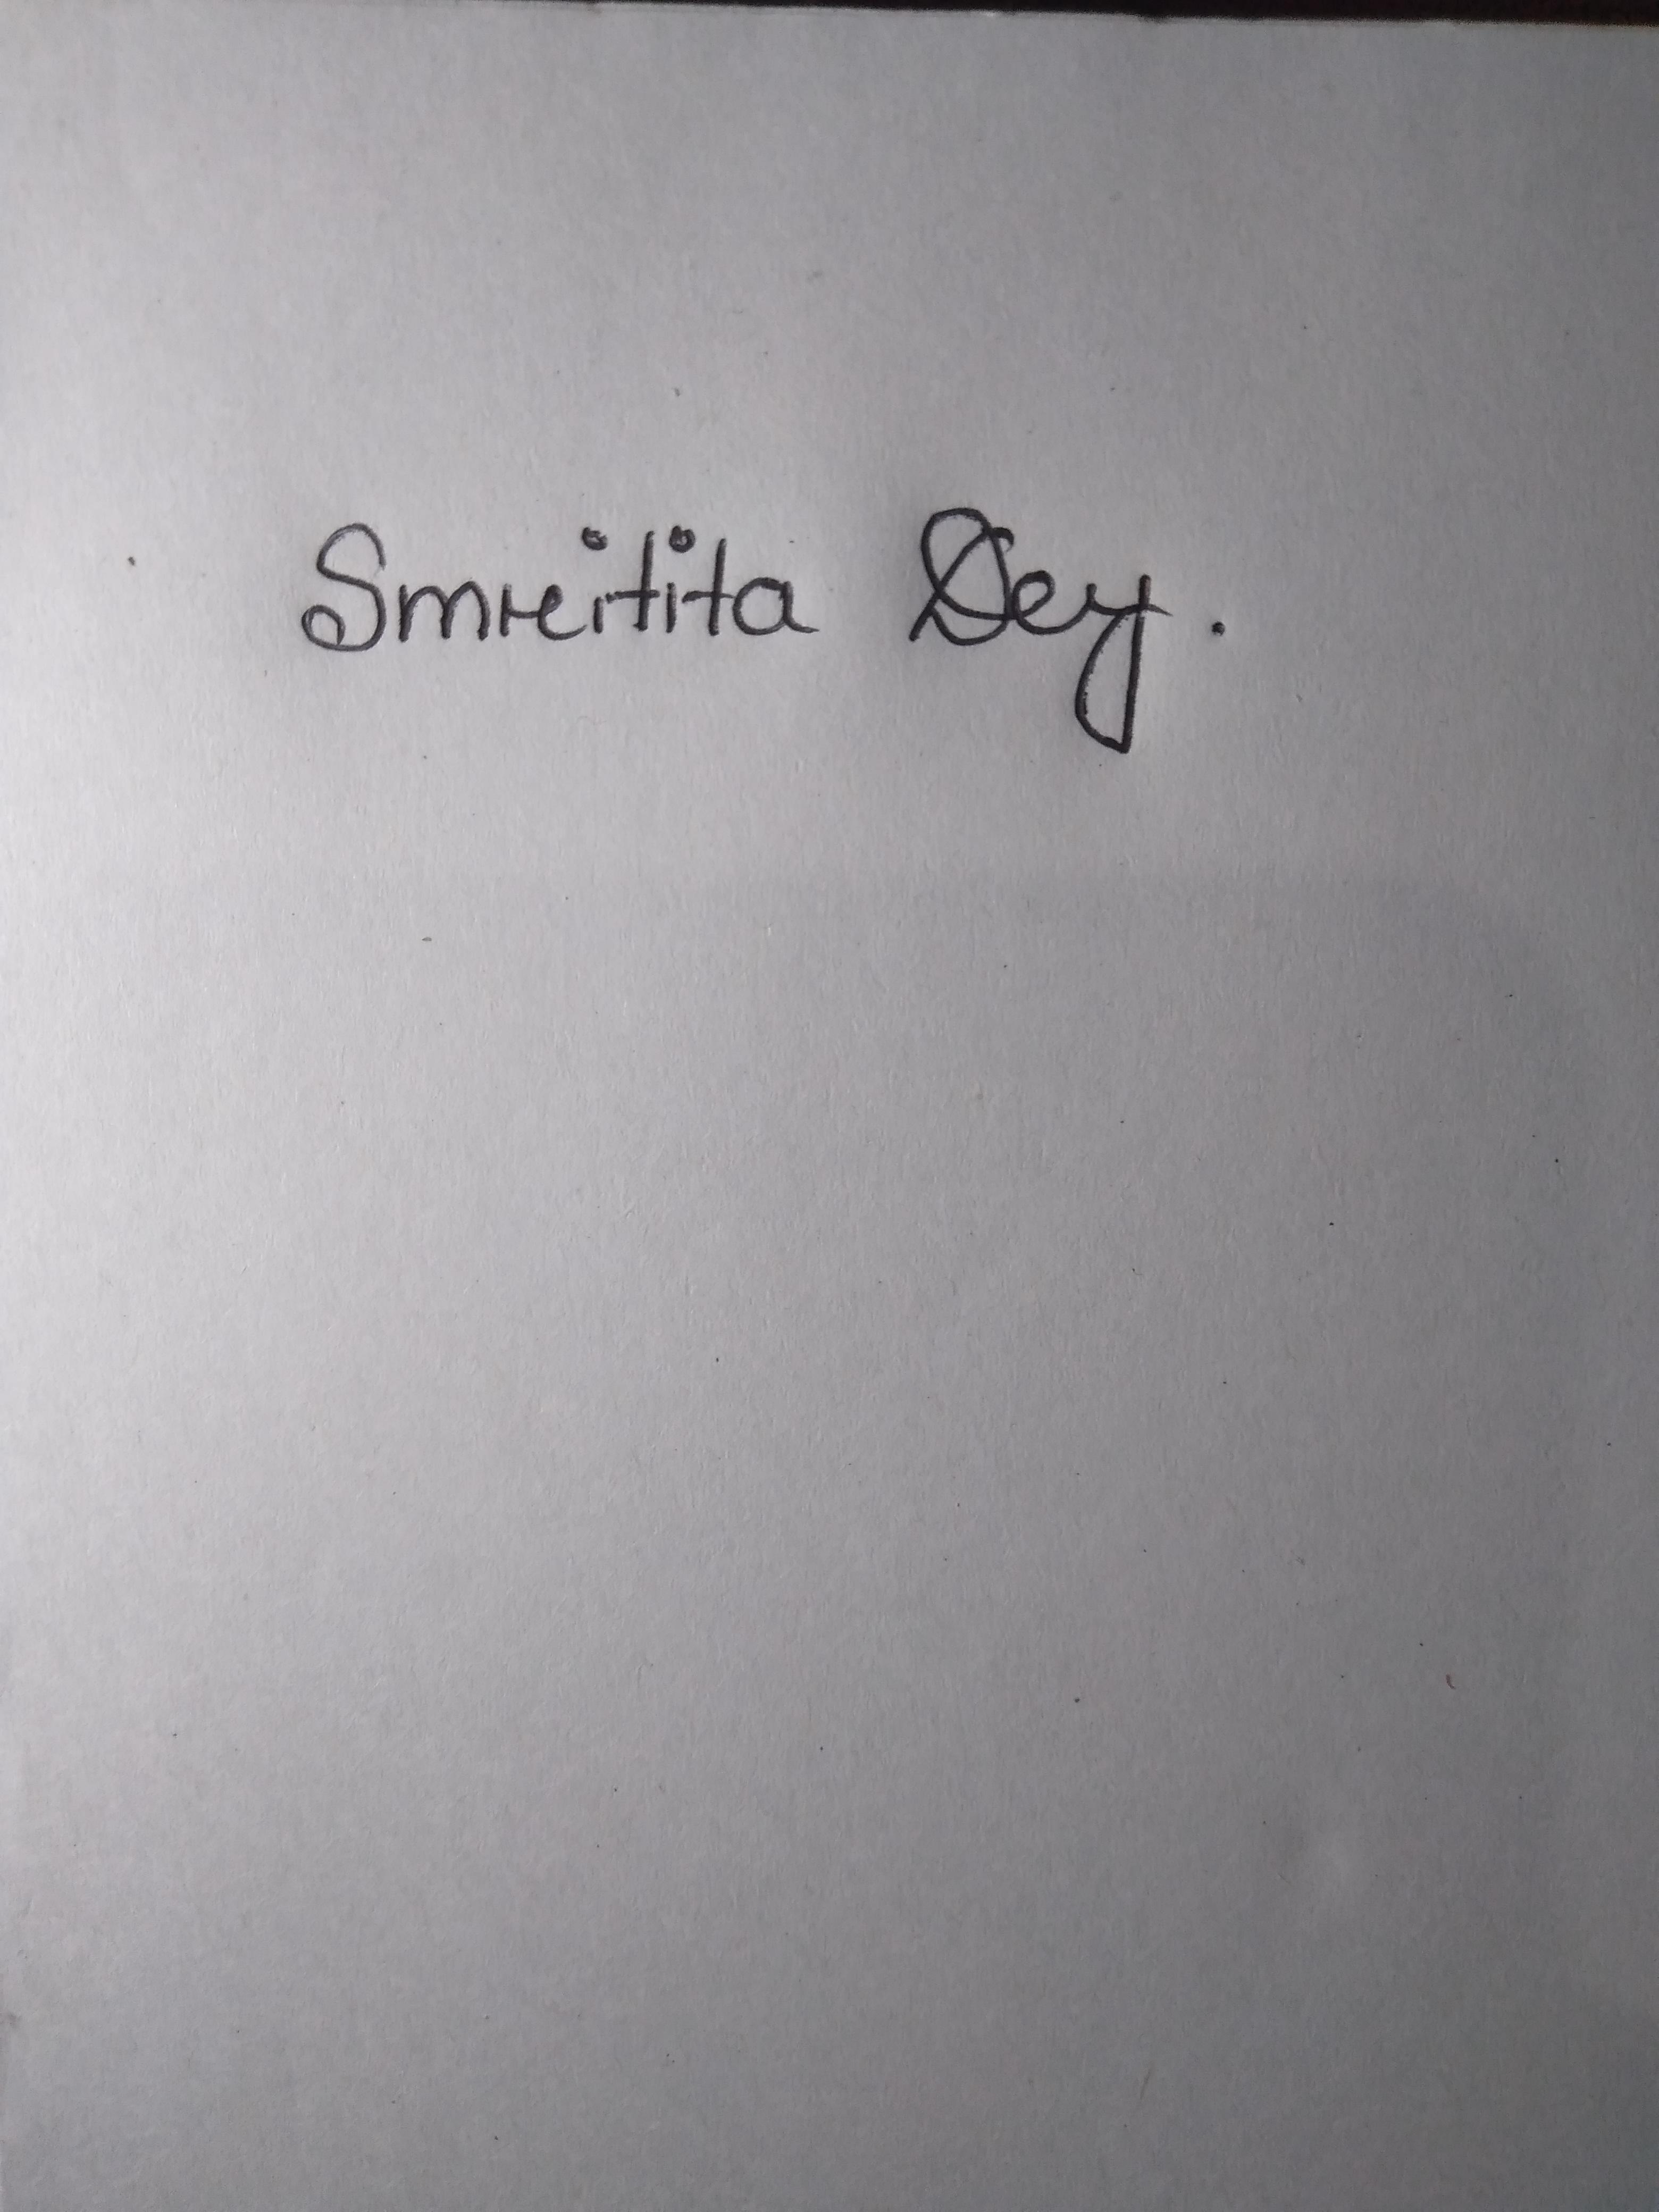 Smritita Dey.